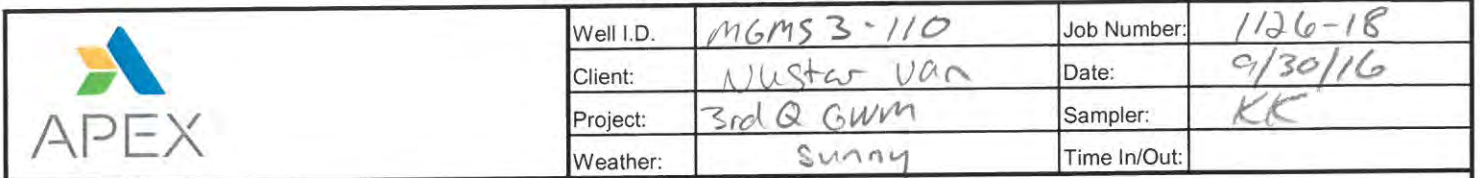 Well I.D. MGMS3-110 Job Number: 1126-18
Client: NuStar Van Date: 9/30/16
Project: 3rd Q GWM Sampler: KK
APEX
Weather: Sunny Time In/Out: